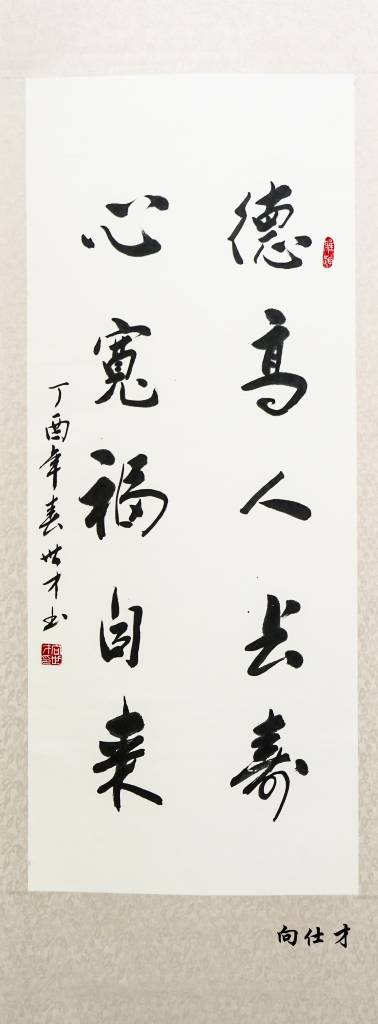 德高人长寿
心寬福自来
丁酉年春世才书
向仕才